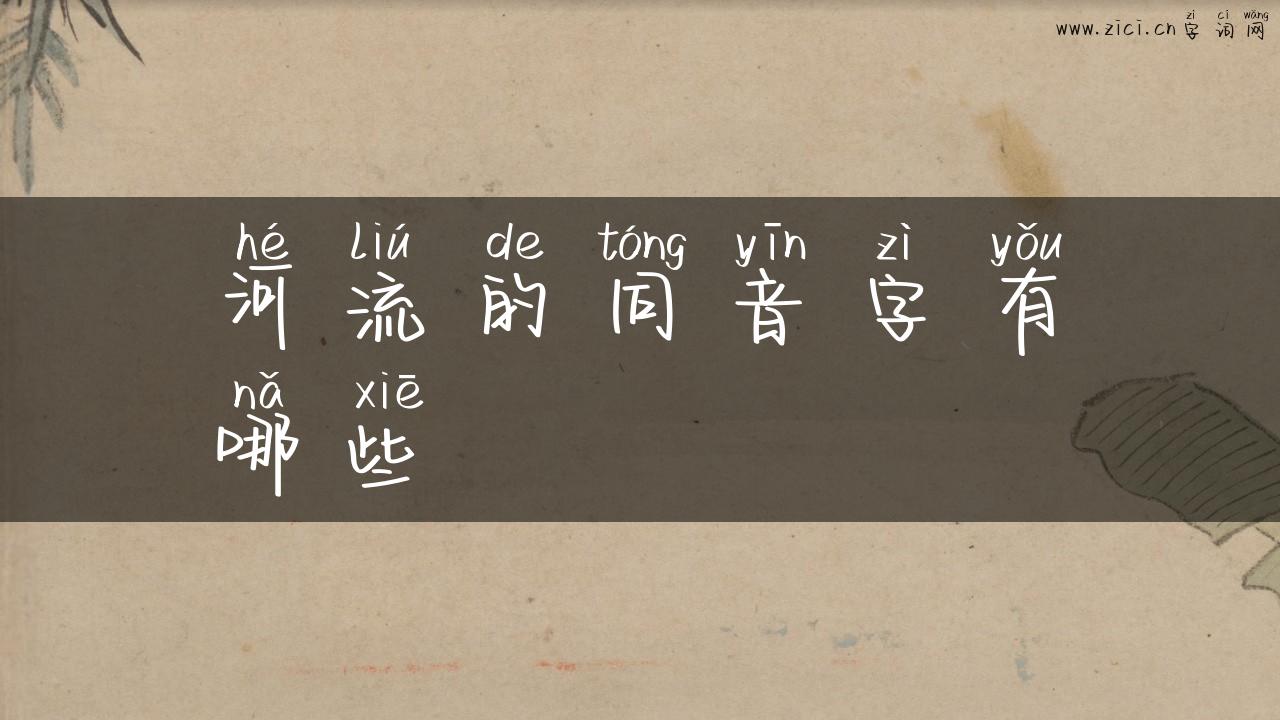 zì cí wǎng
www.zici.cn 字 词 网
hé liú de tóng yīn zì yǒu
河 流 的 同 音 字 有
nǎ xiē
哪 些